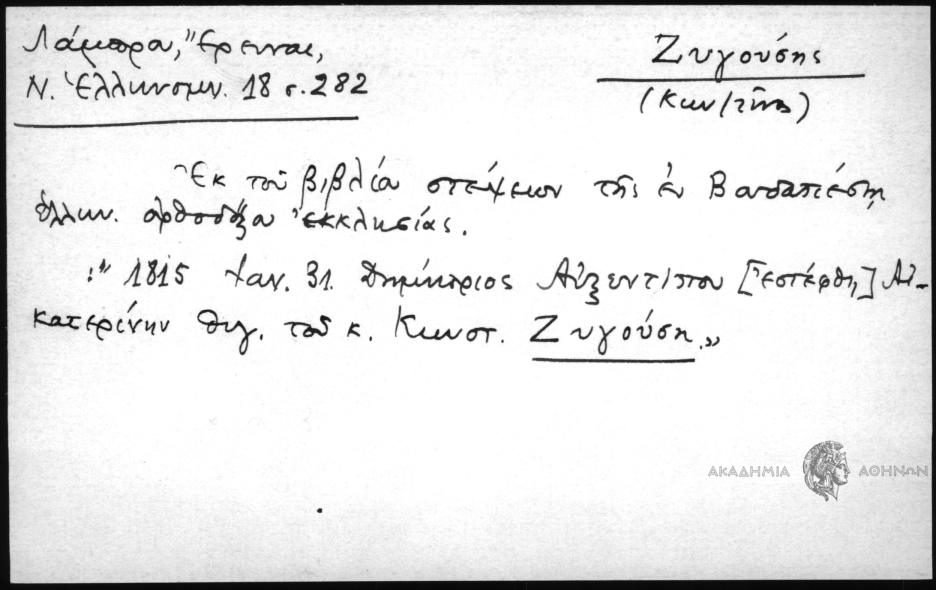 Λάμπρου, Ἔρευναι,
Ν. Ἑλληνομν. 18 σ. 282
Ζυγούσης
(Κων/τῖνος)
Ἐκ τοῦ βιβλίου στέψεων τῆς ἐν Βουδαπέστῃ
ἑλλην. ὀρθοδόξου ἐκκλησίας.
:"1815 Ἰαν. 31. Δημήτριος Αὐξεντίου [ἐστέφθη] Αἰ-
κατερίνην θυγ. τοῦ κ. Κωνστ. Ζυγούση."
ΑΚΑΔΗΜΙΑ ΑΘΗΝΩΝ